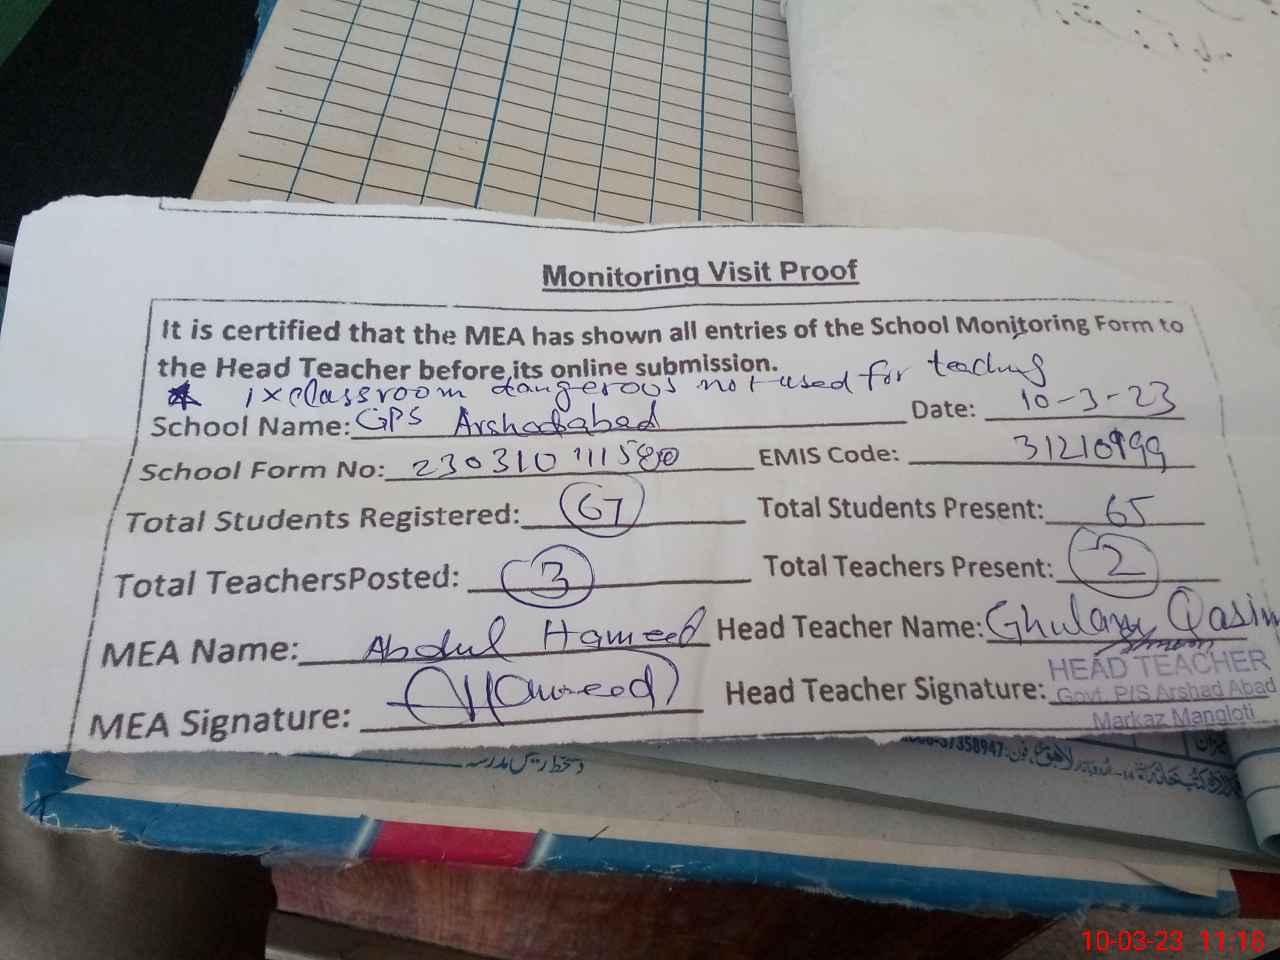 Monitoring Visit Proof
It is certified that the MEA has shown all entries of the School Monitoring Form to
the Head Teacher before its online submission.
* 1xclassroom dangerous not used for teaching
School Name: GPS Arshadabad Date: 10-3-23
School Form No: 230310111580 EMIS Code: 31210999
Total Students Registered: 67 Total Students Present: 65
Total TeachersPosted: 3 Total Teachers Present: 2
MEA Name: Abdul Hameed Head Teacher Name: Ghulam Qasim
MEA Signature: AHameed Head Teacher Signature:
HEAD TEACHER
Govt. P/S Arshad Abad
Markaz Mangloti
دستخط رئیس مدرسہ
37358947
10-03-23 11:18